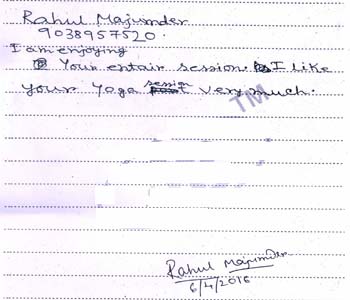 Rahul Majumder
9038957520.
I am enjoying
Your entair session. I like
your Yoga session very much.
TM
Rahul Majumder
6/4/2016